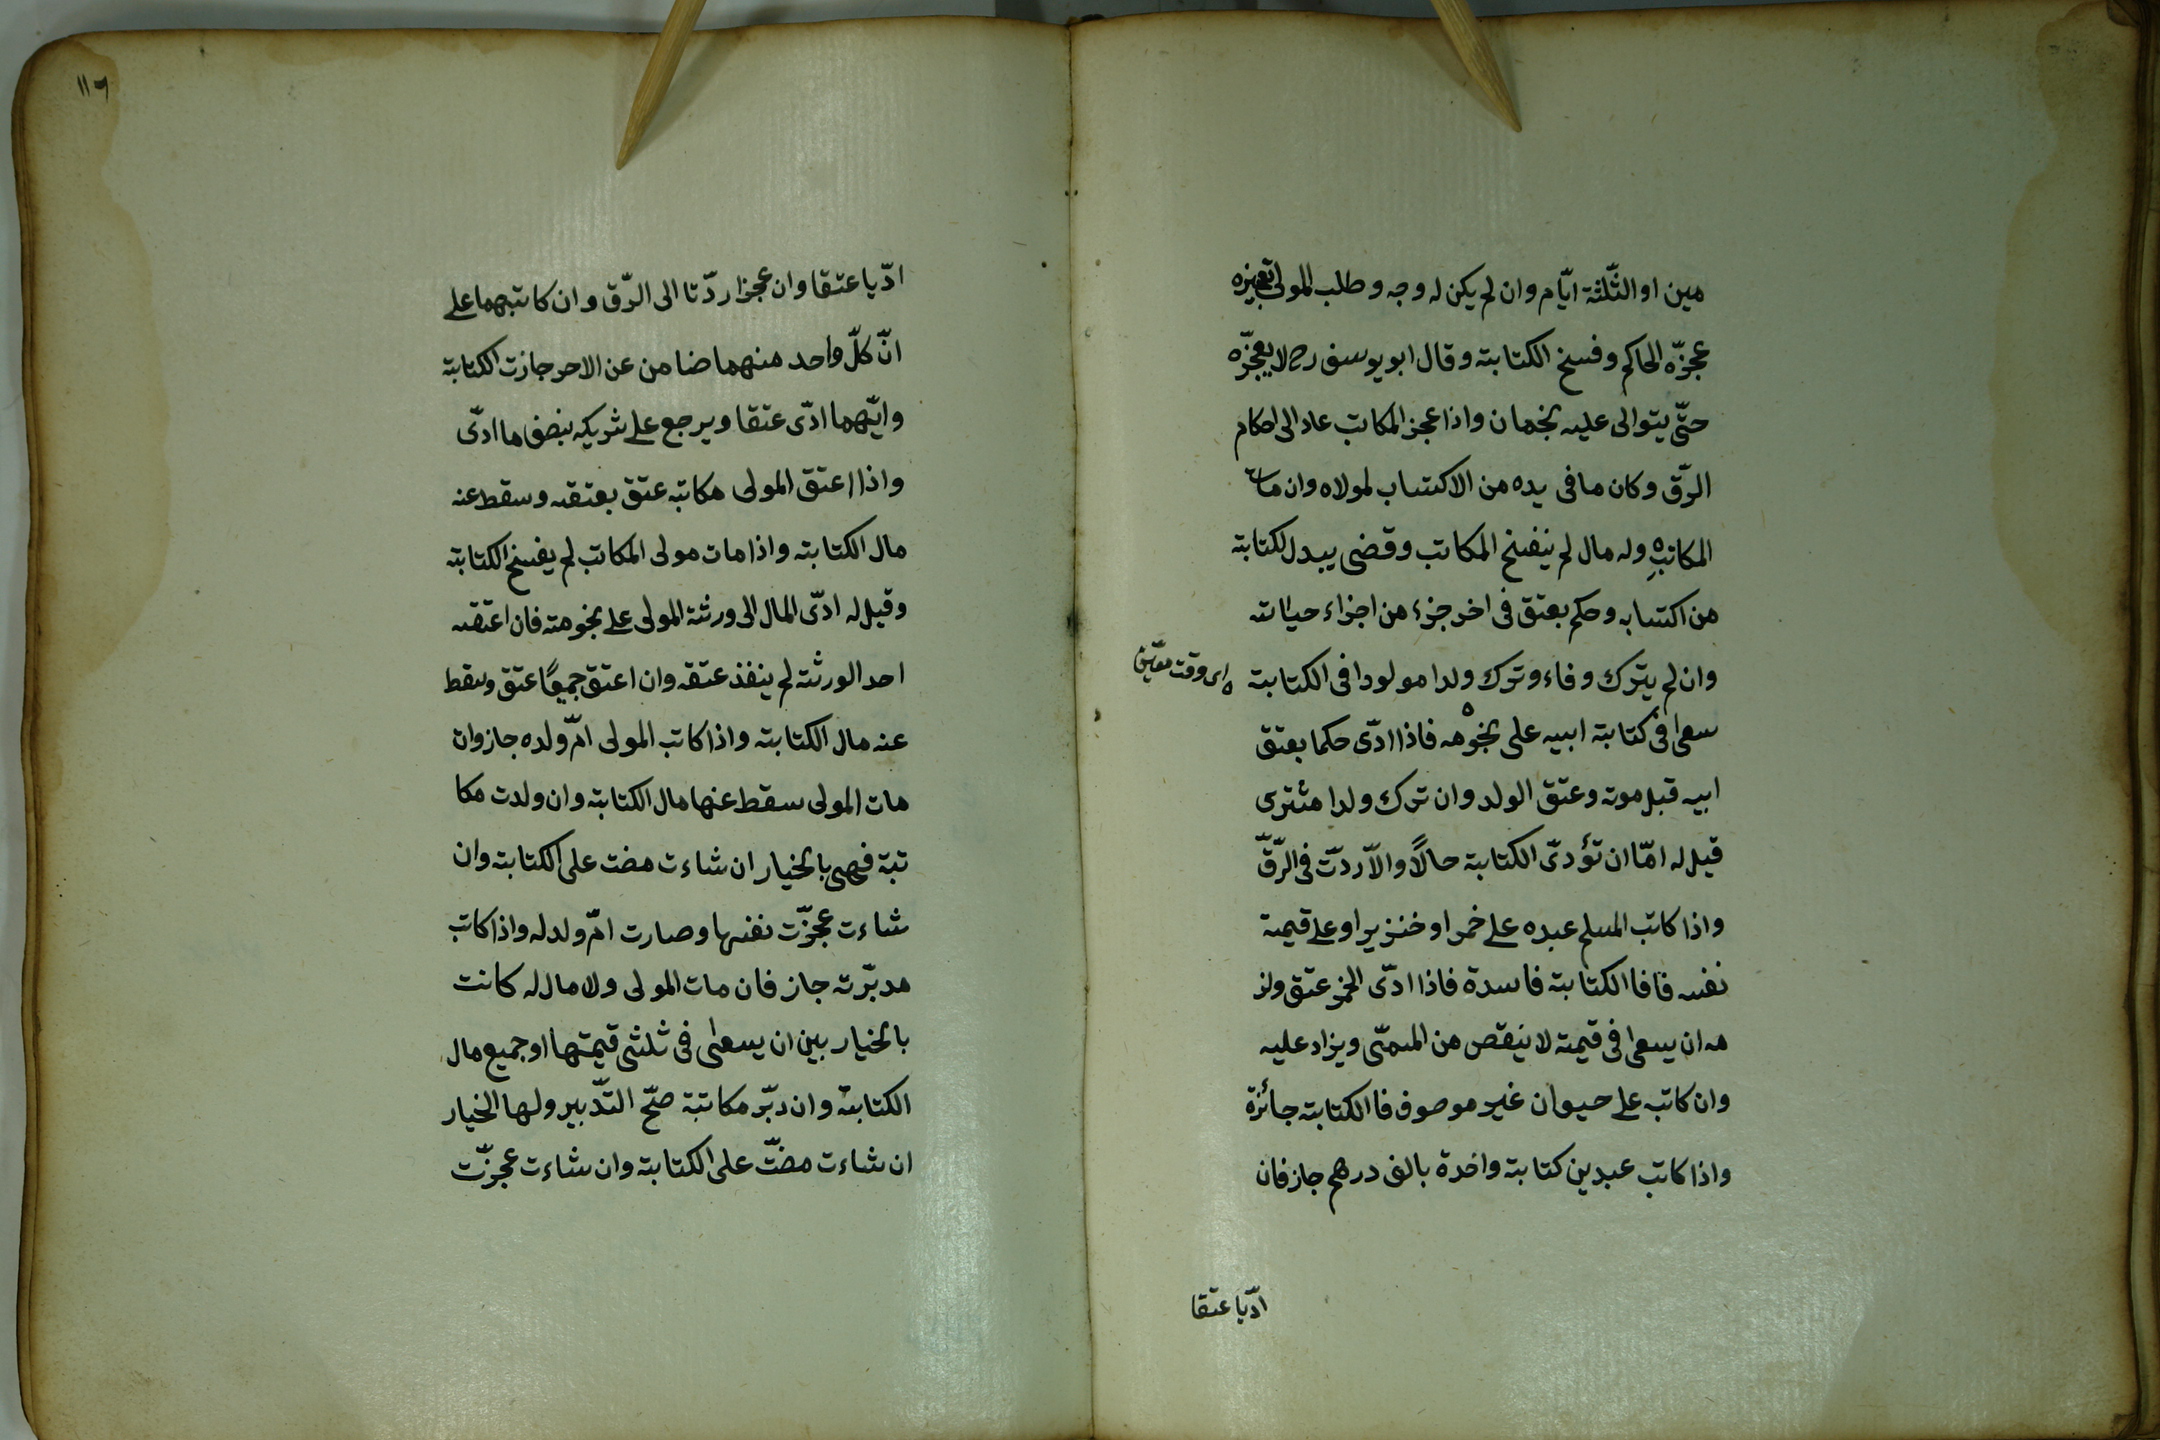 مين او الثّلثة ايّام وان لم يكن له وجه وطلب المولى تعجيزه
عجزّه الحاكم وفسخ الكتابته وقال ابو يوسف رح لا يعجزّه
حتّى يتوالى عليه نجمان واذا عجز المكاتب عاد الى احكام
الرّق وكان ما فى يده من الاكتساب لمولاه وان مات
المكاتب وله مال لم ينفسخ المكاتب وقضى ببدل لكتابته
من اكتسابه وحكم بعتق فى اخر جزء من اجزاء حياته
وان لم يترك وفاء وترك ولدا مولودا فى الكتابته
اى وقت معيّن
سعى فى كتابته ابيه على نجومه فاذا ادّى حكما بعتق
ابيه قبل موته وعتق الولد وان ترك ولدا مشترى
قيل له امّا ان تؤدىّ الكتابته حالاً والاّ ردّت فى الرّقّ
واذا كاتب المسلم عبده على خمر او خنزير او على قيمة
نفسه فافا الكتابته فاسدة فاذا ادّى الخمر عتق ولز
مه ان يسعى فى قيمته لا ينقص من المسمّى ويزاد عليه
وان كاتبه على حيوان غير موصوف فا الكتابته جائزة
واذا كاتب عبدين كتابته واحدة بالف درهم جاز فان
ادّيا عتقا
١١٦
ادّيا عتقا وان عجزا ردّتا الى الرّق وان كاتبهما على
انّ كلّ واحد منهما ضامن عن الاحر جازت الكتابته
وايّهما ادّى عتقا ويرجع على شريكه بنصف ما ادّى
واذا اعتق المولى مكاتبه عتق بعتقه وسقط عنه
مال الكتابته واذا مات مولى المكاتب لم يفسخ الكتابته
وقيل له ادّى المال الى ورثة المولى على نجومته فان اعتقه
احد الورثته لم ينفذ عتقه وان اعتق جميعًا عتق وسقط
عنه مال الكتابته واذا كاتب المولى امّ ولده جاز وان
مات المولى سقط عنها مال الكتابته وان ولدت مكا
تبة فهى بالخيار ان شاءت مضت على الكتابته وان
شاءت عجزّت نفسها وصارت امّ ولد له واذا كاتب
مدبّرته جاز فان مات المولى ولا مال له كانت
بالخيار بين ان يسعى فى ثلثى قيمتها او جميع مال
الكتابته وان دبّر مكاتبة صحّ التّدبير ولها الخيار
ان شاءت مضتّ على الكتابته وان شاءت عجزّت